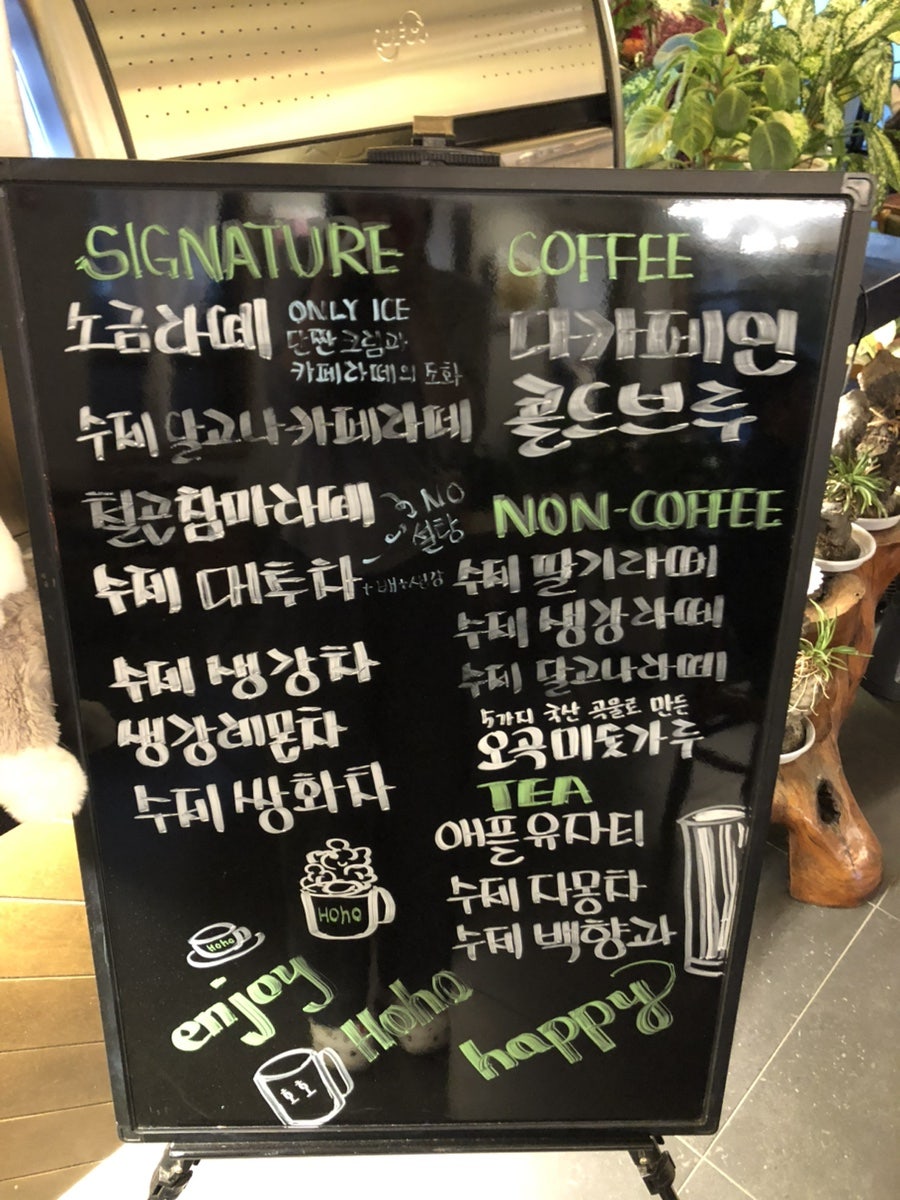 SIGNATURE
소금라떼
ONLY ICE
단짠크림과
카페라떼의 조화
수제 달고나카페라떼
참마라떼
NO
설탕
수제 대추차 +배+생강
수제 생강차
생강레몬차
수제 쌍화차
COFFEE
디카페인
콜드브루
NON-COFFEE
수제 딸기라떼
수제 생강라떼
수제 달고나라떼
5가지 국산 곡물로 만든
오곡미숫가루
TEA
애플유자티
수제 자몽차
수제 백향과
HoHo
HoHo
enjoy
HoHo
happy
호호